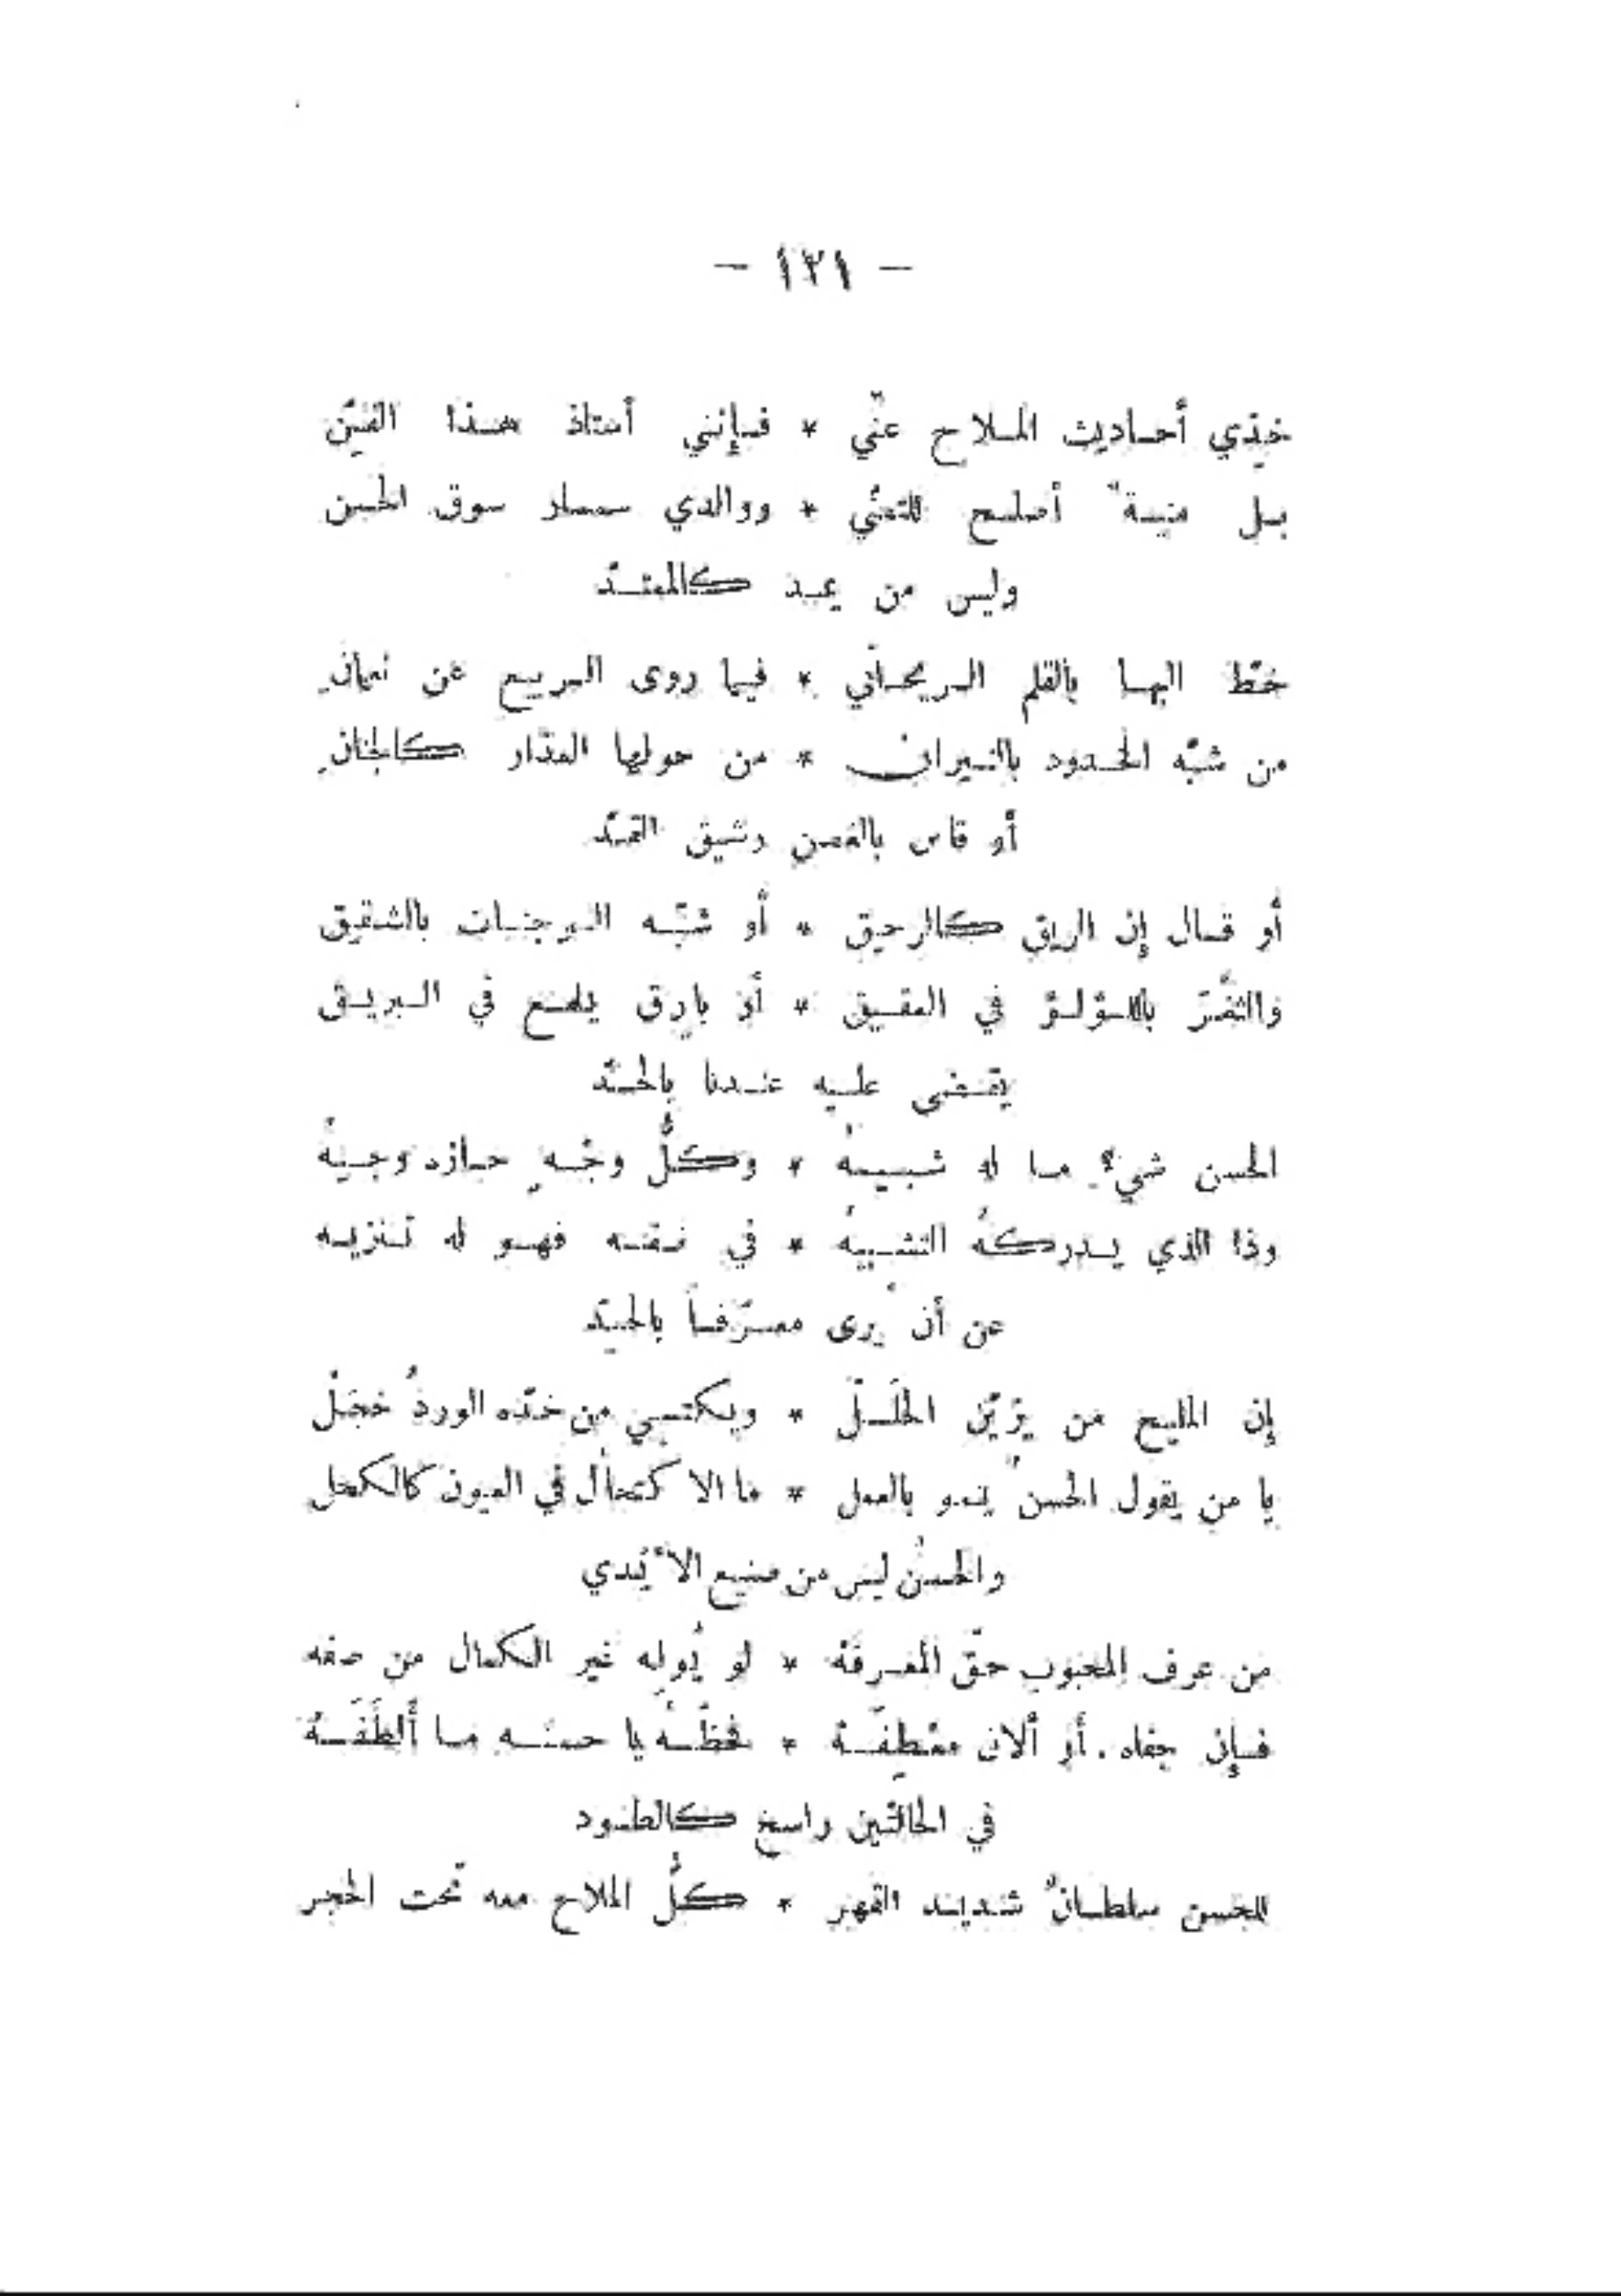 — ١٢١ —
خذي أحاديث الملاح عنّي * فإنني أستاذ هذا الفنّ
بل منية أصلح للتمنّي * ووالدي سمسار سوق الحسن
وليس من يمد كالممتدّ
خطّ اليها بالقلم الريحاني * فيما روى الربيع عن نعمان
من شبّه الخدود بالنيران * من حولها العذار كالجنان
أو قاس بالغصن رشيق القدّ
أو قال إن الريق كالرحيق * أو شبّه الوجنات بالشقيق
والثغر باللؤلؤ في العقيق * أو بارق يلمع في البريق
يقضى عليه عندنا بالحدّ
الحسن شيءٌ ما له شبيهُ * وكلُّ وجهٍ حازه وجيهُ
وذا الذي يدركهُ التشبيهُ * في نقصه فهو له تنزيه
عن أن يرى معرّفاً بالحدّ
إن المليح من يزيّن الحلل * ويكتسي من خدّه الوردُ خجل
يا من يقول الحسنُ ينمو بالعمل * ما الاكتحال في العيون كالكحل
والحسنُ ليس من صنيع الأيدي
من عرف المحبوب حقّ المعرفه * لو يُولِه غير الكمال من صفه
فإن جفاه أو ألان معطِفَه * فحظّه يا حسنه ما ألطَفَه
في الحالتين راسخ كالطود
للحسن سلطانٌ شديد القهر * كلُّ الملاح معه تحت الحجر